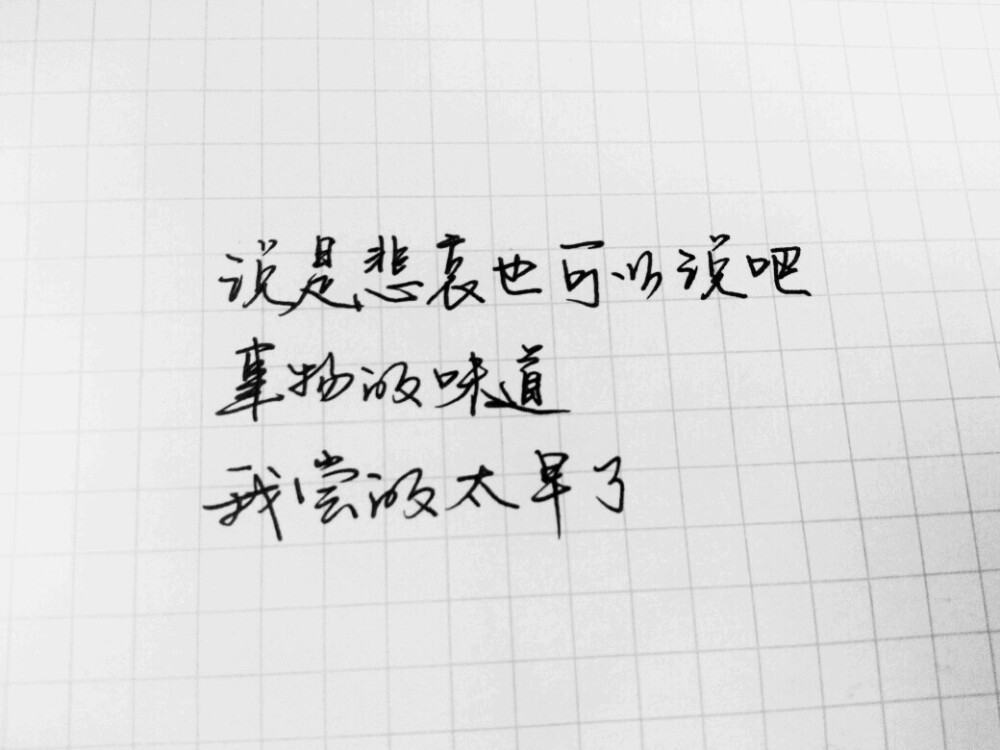 说是悲哀也可以说吧
事物的味道
我尝的太早了